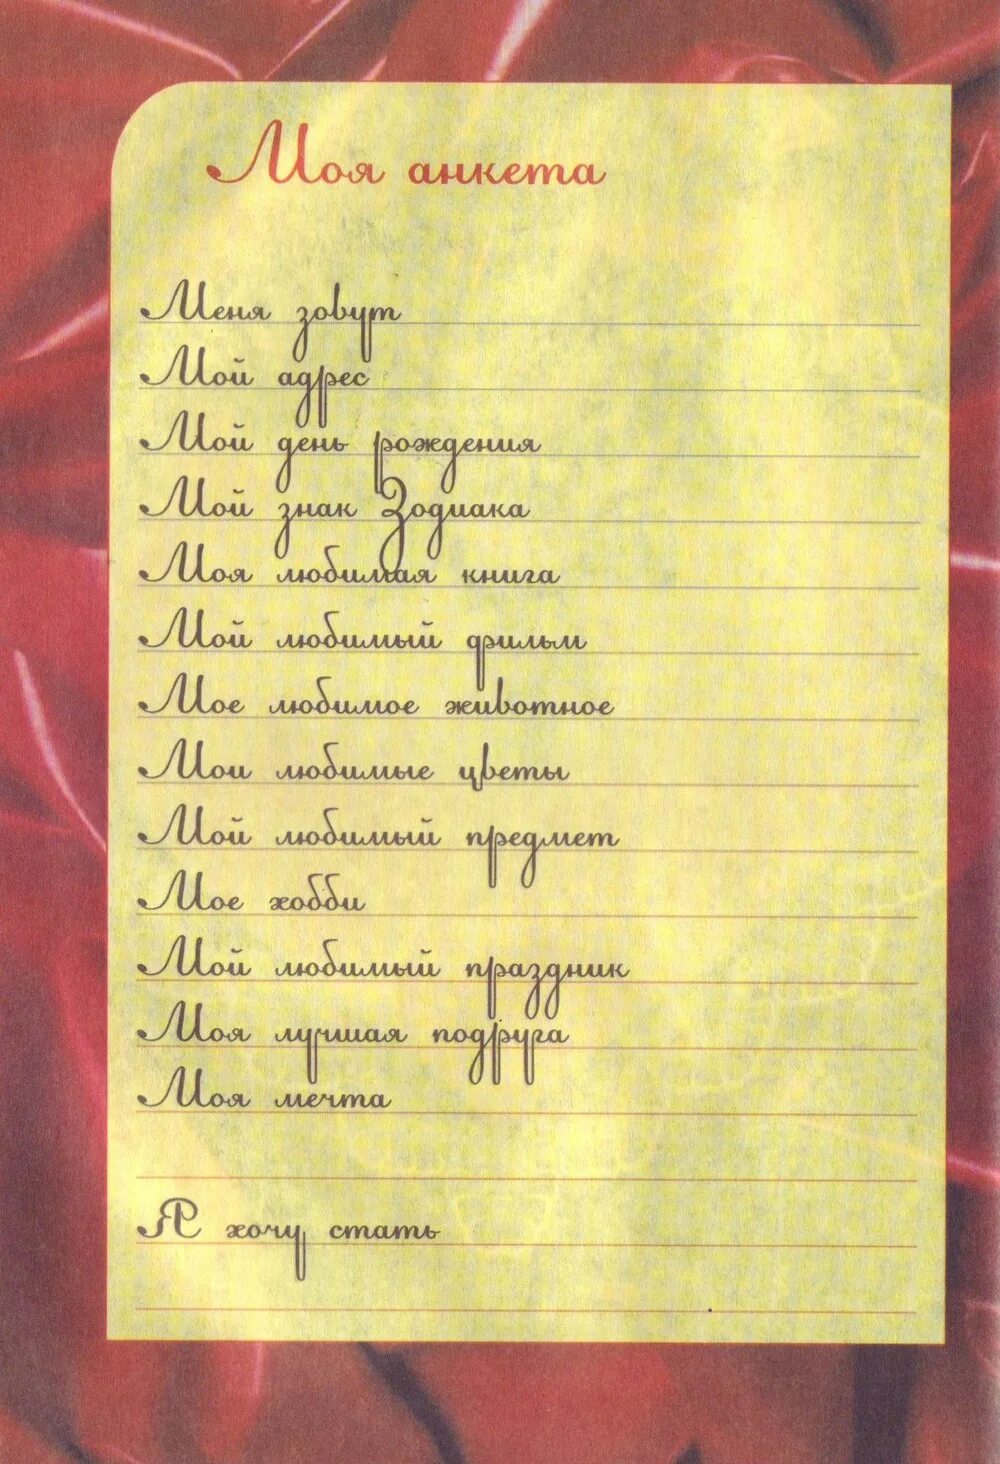 Моя анкета
Меня зовут
Мой адрес
Мой день рождения
Мой знак Зодиака
Моя любимая книга
Мой любимый фильм
Мое любимое животное
Мои любимые цветы
Мой любимый предмет
Мое хобби
Мой любимый праздник
Моя лучшая подруга
Моя мечта
Я хочу стать